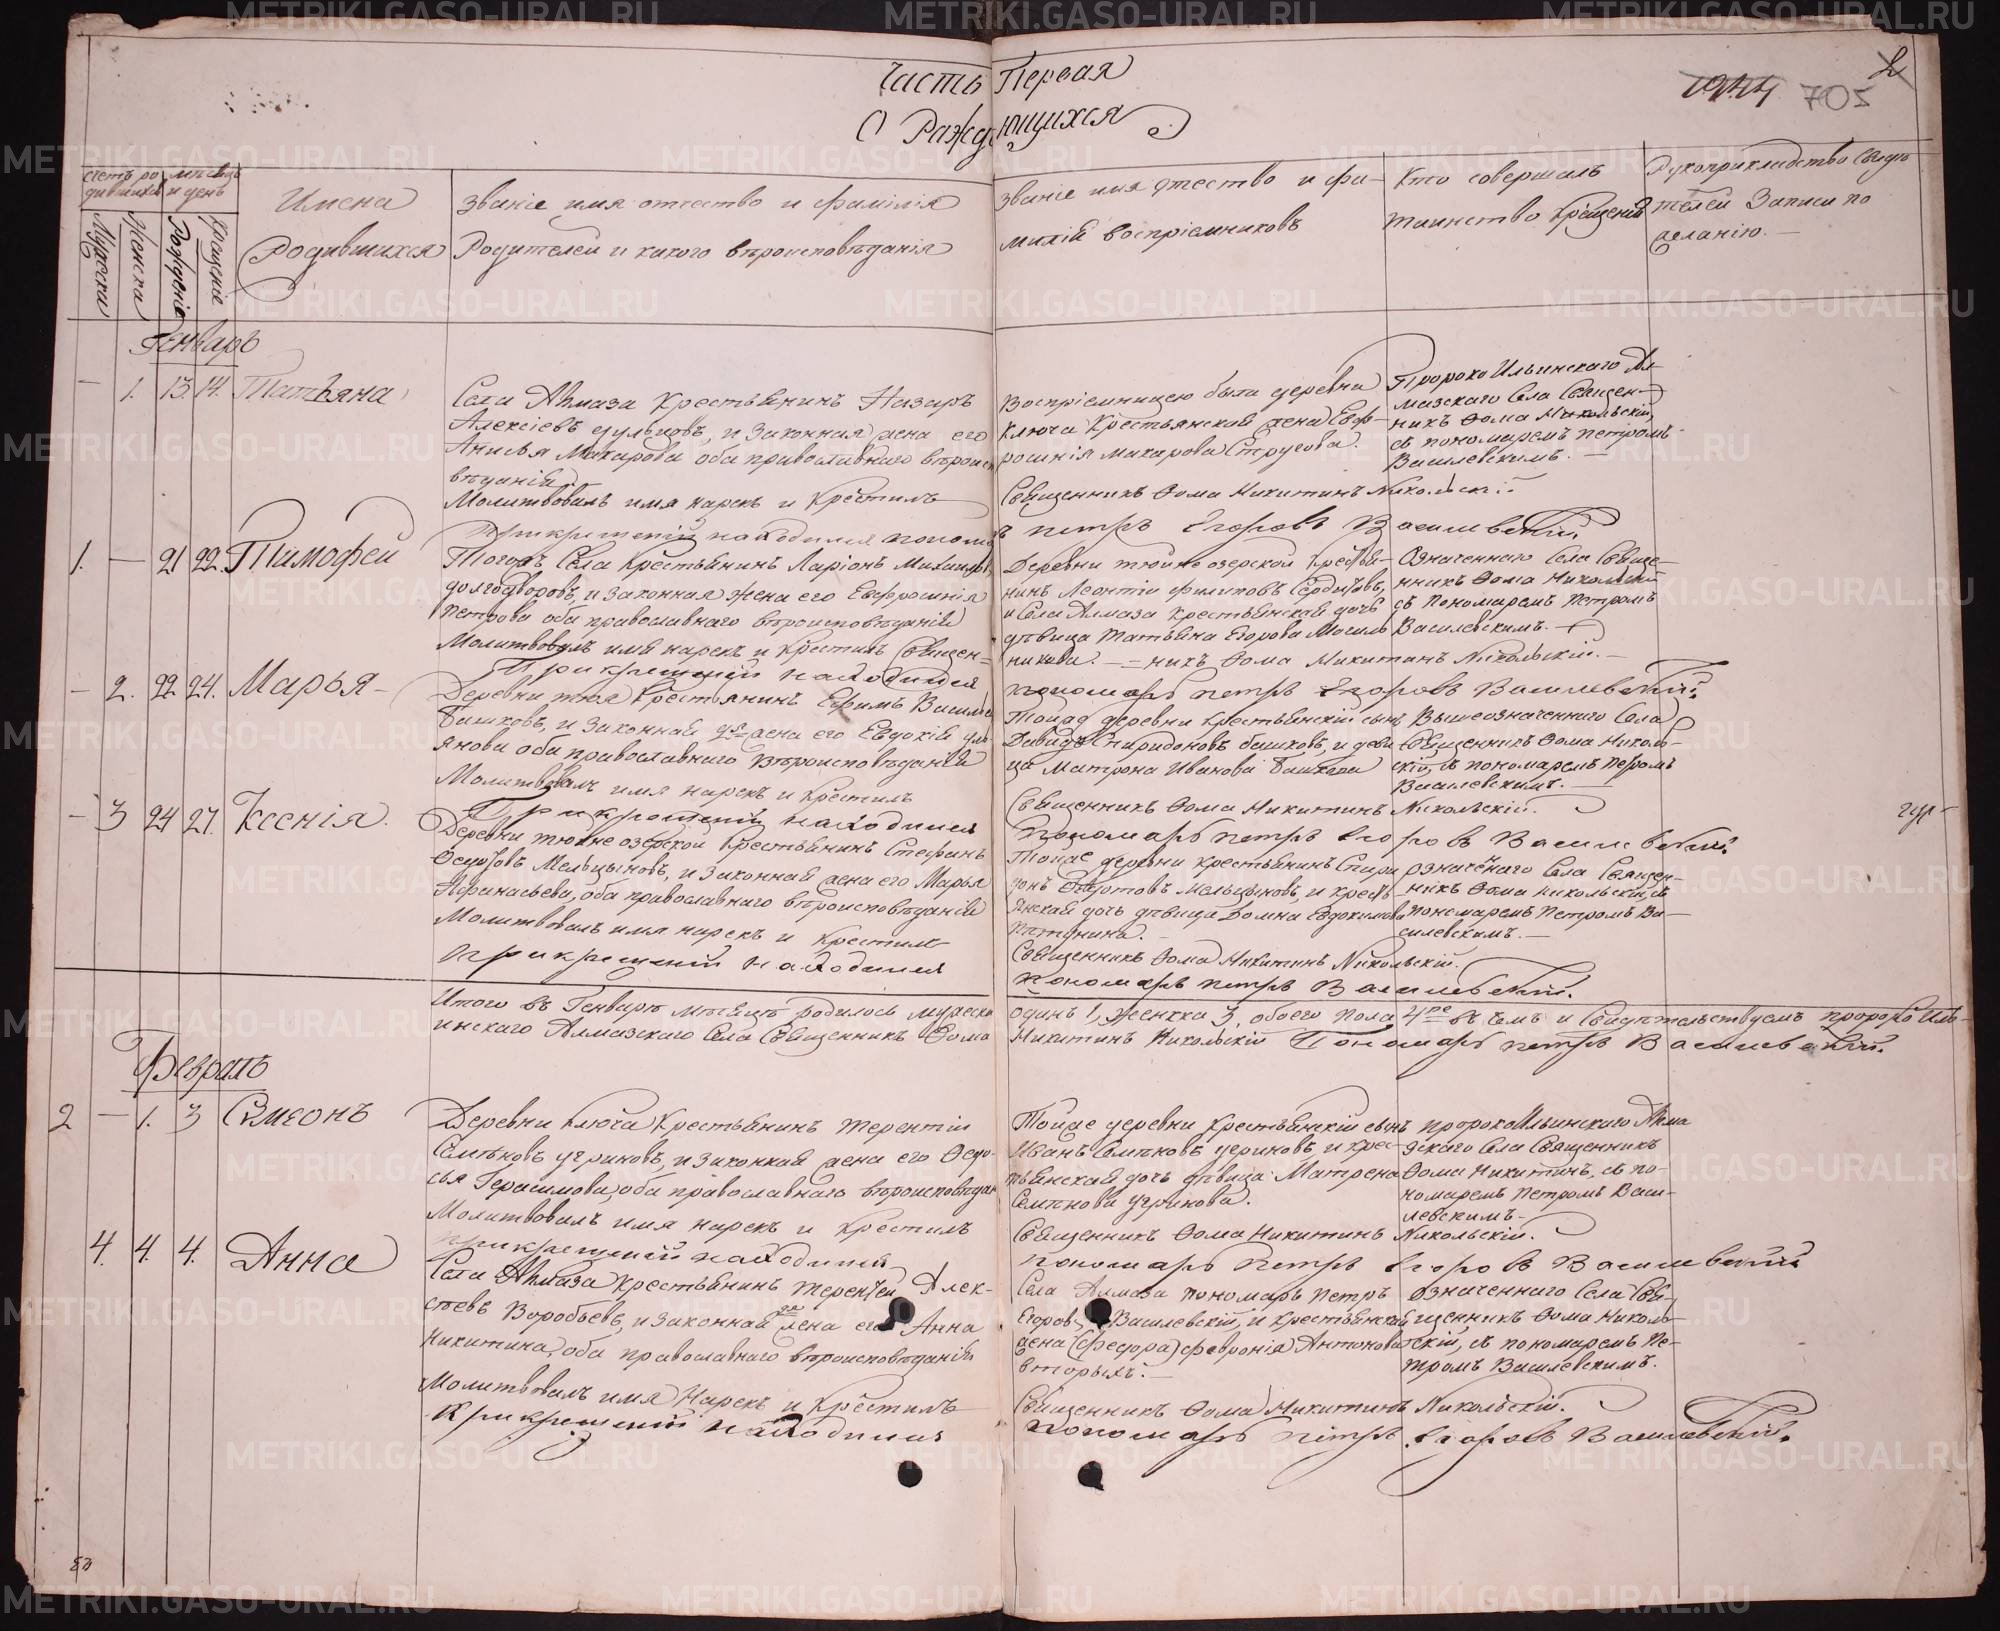 Часть Первая
О Раждающихся
705
счетъ ро
дившихся
мѣсяцъ
и день
Мужеска
Женска
Рождение
Крещение
Имена
Родившихся
Званіе имя отчество и фамилія
Родителей и какого вѣроисповѣданія
Званіе имя отчество и фа-
милій воспріемниковъ
Кто совершалъ
таинство крещенія
Рукоприкладство свидѣ
телей Записи по
желанію.
Генварь
— 1. 13. 14. Татьяна
Села Алмаза Крестьянинъ Назаръ
Алексіевъ и Законная жена его
Анисья Макарова оба православнаго вѣроиспо
вѣданія
Молитвовалъ имя нарекъ и Крестилъ
При крещеніи находился пономарь
Воспріемницею была деревни
Ключа Крестьянская жена Евф-
росинія Макарова Струсова.
Священникъ Ѳома Никитинъ Никольскій
петръ Егоровъ Василевскій.
Пророко Ильинскаго Ал-
мазскаго Села Священ-
никъ Ѳома Никольскій,
съ пономаремъ Петромъ
Василевскимъ.
1. — 21 22. Тимофей
Тогожъ Села Крестьянинъ Ларіонъ Михайловъ
Долгодворовъ, и законная жена его Евфросинія
Петрова оба православнаго вѣроисповѣданія
Молитвовалъ имя нарекъ и крестилъ Священ-
При крещеніи находился
Деревни Тюйно озерской Крестья-
нинъ Леонтій Филиповъ Сердитовъ,
и Села Алмаза Крестьянская дочь
дѣвица Татьяна Егорова Мосиль
никова. — никъ Ѳома Никитинъ Никольскій.
пономарь петръ Егоровъ Василевскій.
Означеннаго Села Священ-
нникъ Ѳома Никольскій
съ Пономаремъ Петромъ
Василевскимъ.
— 2. 22. 24. Марья
Деревни Тюя Крестьянинъ Ефимъ Василье
Башковъ, и законная жена его Евдокія
янова оба православнаго Вѣроисповѣданія
Молитвовалъ имя нарекъ и Крестилъ
При крещеніи находился
Тойже деревни крестьянскій сынъ
Давидъ Спиридоновъ башковъ, и деви
ца Матрона Иванова Башкова
Священникъ Ѳома Никитинъ Никольскій.
пономарь петръ Егоровъ Василевскій.
Вышеозначеннаго Села
Священникъ Ѳома Николь-
скій, съ пономаремъ Петромъ
Василевскимъ.
— 3 24 27. Ксенія.
Деревни Тюйно озерской Крестьянинъ Стефанъ
Федотовъ Мельцыновъ, и законная жена его Марья
Афанасьева, оба православнаго вѣроисповѣданія
Молитвовалъ имя нарекъ и Крестилъ
При крещеніи находился
Тойже деревни Крестьянинъ Спири
донъ Федотовъ Мельцыновъ, и крестъ
янская дочь дѣвица Домна Евдокимова
Пятунина.
Священникъ Ѳома Никитинъ Никольскій.
пономарь петръ Василевскій.
означенаго Села Священ-
никъ Ѳома Никольскій, съ
пономаремъ Петромъ Ва-
силевскимъ.
Итого въ Генварѣ мѣсяцѣ родилось мужеска одинъ 1, женска 3, обоего пола 4ре въ чемъ и Свидѣтельствуемъ пророко Иль-
инскаго Алмазскаго Села Священникъ Ѳома Никитинъ Никольскій Пономарь петръ Василевскій.
Февраль
2 — 1. 3 Симеонъ
Деревни Ключа Крестьянинъ Терентій
Семѣновъ угриновъ, и законная жена его Ѳедо-
сья Герасимова, оба православнаго вѣроисповѣдан
Молитвовалъ имя нарекъ и Крестилъ
при крещеніи находился
Тойже деревни Крестьянскій сынъ
Иванъ Семѣновъ угриновъ, и крес-
тьянская дочь дѣвица Матрена
Семѣнова угринова.
Священникъ Ѳома Никитинъ Никольскій.
пономарь Петръ Егоровъ Василевскій
пророко Ильинскаго Алма
зскаго Села Священникъ
Ѳома Никитинъ, съ по-
номаремъ Петромъ Васи-
левскимъ
4. 4. 4. Анна
Села Алмаза Крестьянинъ Терентій Алек-
сѣевъ Воробьевъ, и законная жена его Анна
Никитина, оба православнаго вѣроисповѣданія
Молитвовалъ имя Нарекъ и Крестилъ
При крещеніи находился
Села Алмаза пономарь Петръ
Егоровъ Василевскій, и Крестьянская
жена (Федора) Февронія Антонова
вторыхъ.
Священникъ Ѳома Никитинъ Никольскій.
пономарь петръ Егоровъ Василевскій.
означеннаго Села Свя-
щенникъ Ѳома Николь-
скій, съ пономаремъ Пе-
тромъ Василевскимъ.
METRIKI.GASO-URAL.RU